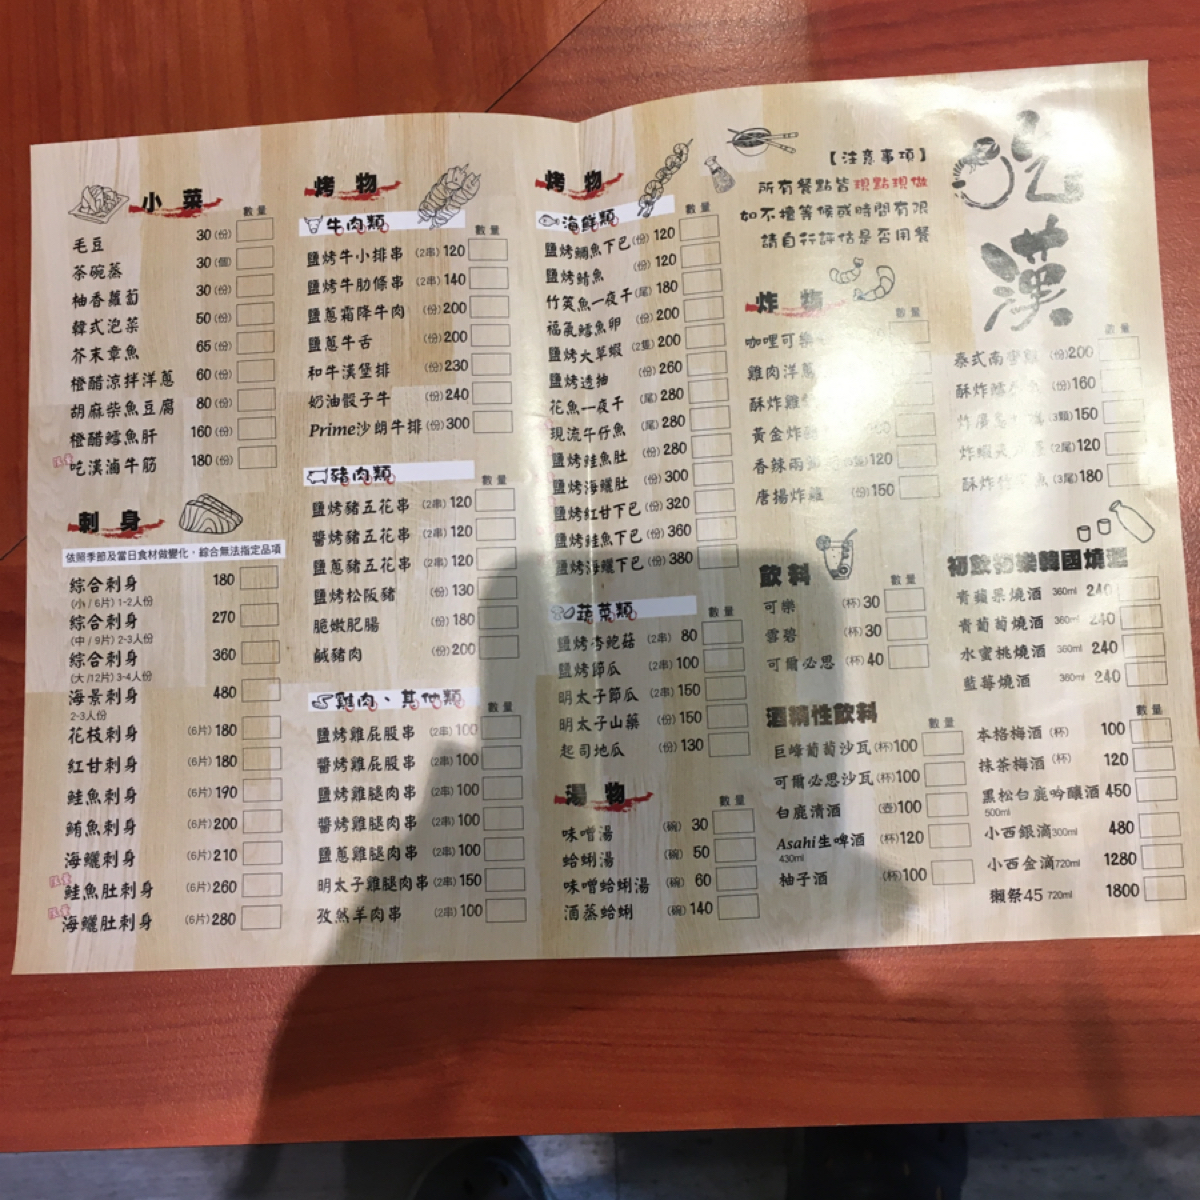 小菜
數量
毛豆 30(份)
茶碗蒸 30(個)
柚香蘿蔔 30(份)
韓式泡菜 50(份)
芥末章魚 65(份)
橙醋涼拌洋蔥 60(份)
胡麻柴魚豆腐 80(份)
橙醋鱈魚肝 160(份)
吃漢滷牛筋 180(份)
刺身
依照季節及當日食材做變化，綜合無法指定品項
綜合刺身 180
(小/6片)1-2人份
綜合刺身 270
(中/9片)2-3人份
綜合刺身 360
(大/12片)3-4人份
海景刺身 480
2-3人份
花枝刺身 (6片)180
紅甘刺身 (6片)180
鮭魚刺身 (6片)190
鮪魚刺身 (6片)200
海鱺刺身 (6片)210
鮭魚肚刺身 (6片)260
海鱺肚刺身 (6片)280
烤物
牛肉類
數量
鹽烤牛小排串 (2串)120
鹽烤牛肋條串 (2串)140
鹽蔥霜降牛肉 (份)200
鹽蔥牛舌 (份)200
和牛漢堡排 (份)230
奶油骰子牛 (份)240
Prime沙朗牛排(份)300
豬肉類
數量
鹽烤豬五花串 (2串)120
醬烤豬五花串 (2串)120
鹽蔥豬五花串 (2串)120
鹽烤松阪豬 (份)130
脆嫩肥腸 (份)180
鹹豬肉 (份)200
雞肉、其他類
數量
鹽烤雞屁股串 (2串)100
醬烤雞屁股串 (2串)100
鹽烤雞腿肉串 (2串)100
醬烤雞腿肉串 (2串)100
鹽蔥雞腿肉串 (2串)100
明太子雞腿肉串(2串)150
孜然羊肉串 (2串)100
烤物
海鮮類
數量
鹽烤鯛魚下巴(份)120
鹽烤鯖魚 (份)120
竹筴魚一夜干(尾)180
福氣鱈魚卵 (份)200
鹽烤大草蝦 (2隻)200
鹽烤透抽 (份)260
花魚一夜干 (尾)280
現流午仔魚 (尾)280
鹽烤鮭魚肚 (份)280
鹽烤海鱺肚 (份)300
鹽烤紅甘下巴(份)320
鹽烤鮭魚下巴(份)360
鹽烤海鱺下巴(份)380
蔬菜類
數量
鹽烤杏鮑菇 (2串)80
鹽烤節瓜 (2串)100
明太子節瓜 (2串)150
明太子山藥 (份)150
起司地瓜 (份)130
湯物
數量
味噌湯 (碗)30
蛤蜊湯 (碗)50
味噌蛤蜊湯 (碗)60
酒蒸蛤蜊 (碗)140
【注意事項】
所有餐點皆現點現做
如不擅等候或時間有限
請自行評估是否用餐
炸物
數量
咖哩可樂
雞肉洋蔥
酥炸雞
黃金炸
香辣雨 120
唐揚炸雞 (份)150
飲料
數量
可樂 (杯)30
雪碧 (杯)30
可爾必思 (杯)40
酒精性飲料
數量
巨峰葡萄沙瓦(杯)100
可爾必思沙瓦(杯)100
白鹿清酒 (壺)100
Asahi生啤酒 (杯)120
430ml
柚子酒 (杯)100
吃漢
數量
泰式南 (份)200
酥炸鱈 (份)160
炸 (3顆)150
炸蝦天 (2尾)120
酥炸 魚(3尾)180
初飲初樂韓國燒酒
青蘋果燒酒 360ml 240
青葡萄燒酒 360ml 240
水蜜桃燒酒 360ml 240
藍莓燒酒 360ml 240
數量
本格梅酒(杯) 100
抹茶梅酒(杯) 120
黑松白鹿吟釀酒 450
500ml
小西銀滴300ml 480
小西金滴720ml 1280
獺祭45 720ml 1800